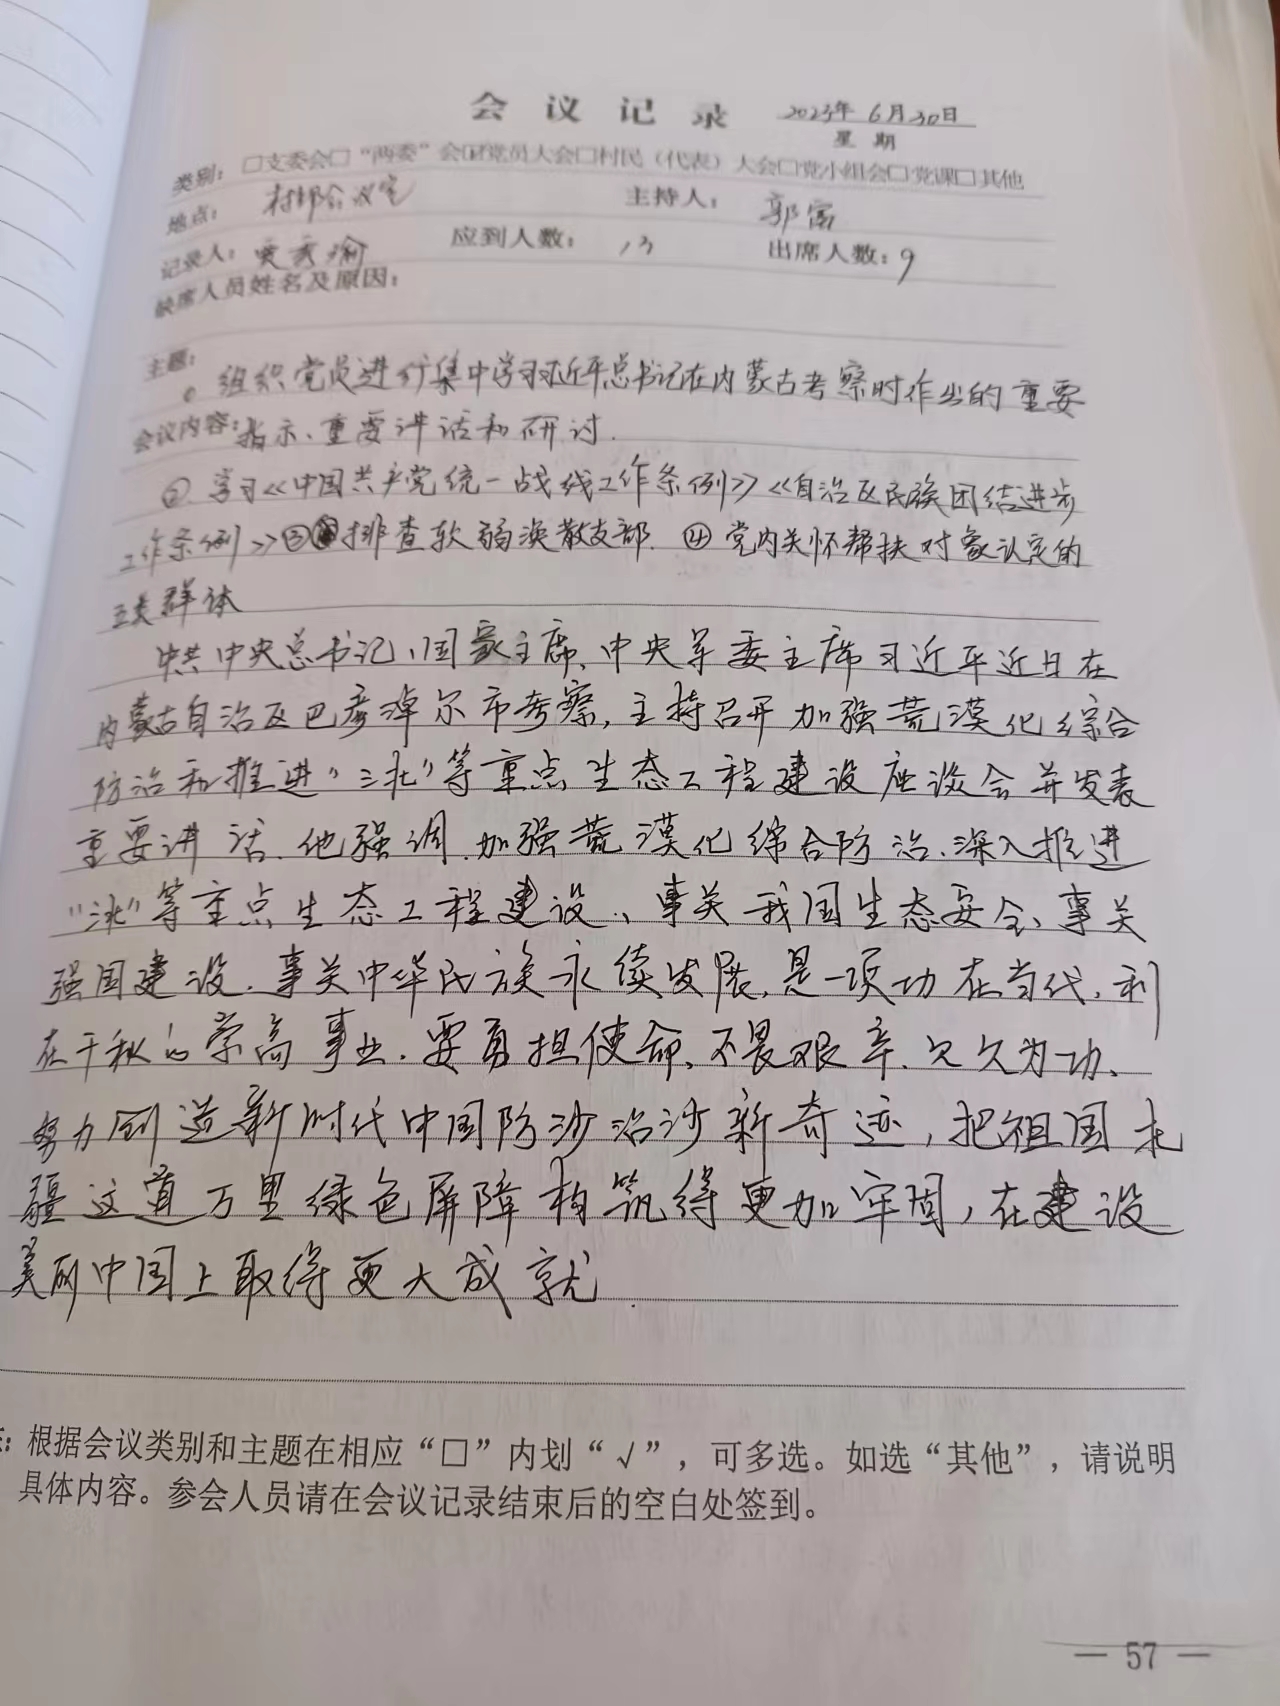 会 议 记 录 2023年 6月30日
星 期
类别：□支委会□“两委”会☑党员大会□村民（代表）大会□党小组会□党课□其他
地点： 村部会议室 主持人： 郭富
记录人： 应到人数： 13 出席人数：9
缺席人员姓名及原因：
主题：
① 组织党员进行集中学习习近平总书记在内蒙古考察时作出的重要
会议内容：指示、重要讲话和研讨.
② 学习《中国共产党统一战线工作条例》《自治区民族团结进步
工作条例》③排查软弱涣散支部. ④ 党内关怀帮扶对象认定的
三类群体
中共中央总书记、国家主席、中央军委主席习近平近日在
内蒙古自治区巴彦淖尔市考察，主持召开加强荒漠化综合
防治和推进“三北”等重点生态工程建设座谈会并发表
重要讲话.他强调.加强荒漠化综合防治.深入推进
“三北”等重点生态工程建设、事关我国生态安全、事关
强国建设.事关中华民族永续发展，是一项功在当代，利
在千秋的崇高事业.要勇担使命、不畏艰辛.久久为功、
努力创造新时代中国防沙治沙新奇迹，把祖国北
疆这道万里绿色屏障构筑得更加牢固，在建设
美丽中国上取得更大成就.
：根据会议类别和主题在相应“□”内划“√”，可多选。如选“其他”，请说明
具体内容。参会人员请在会议记录结束后的空白处签到。
— 57 —